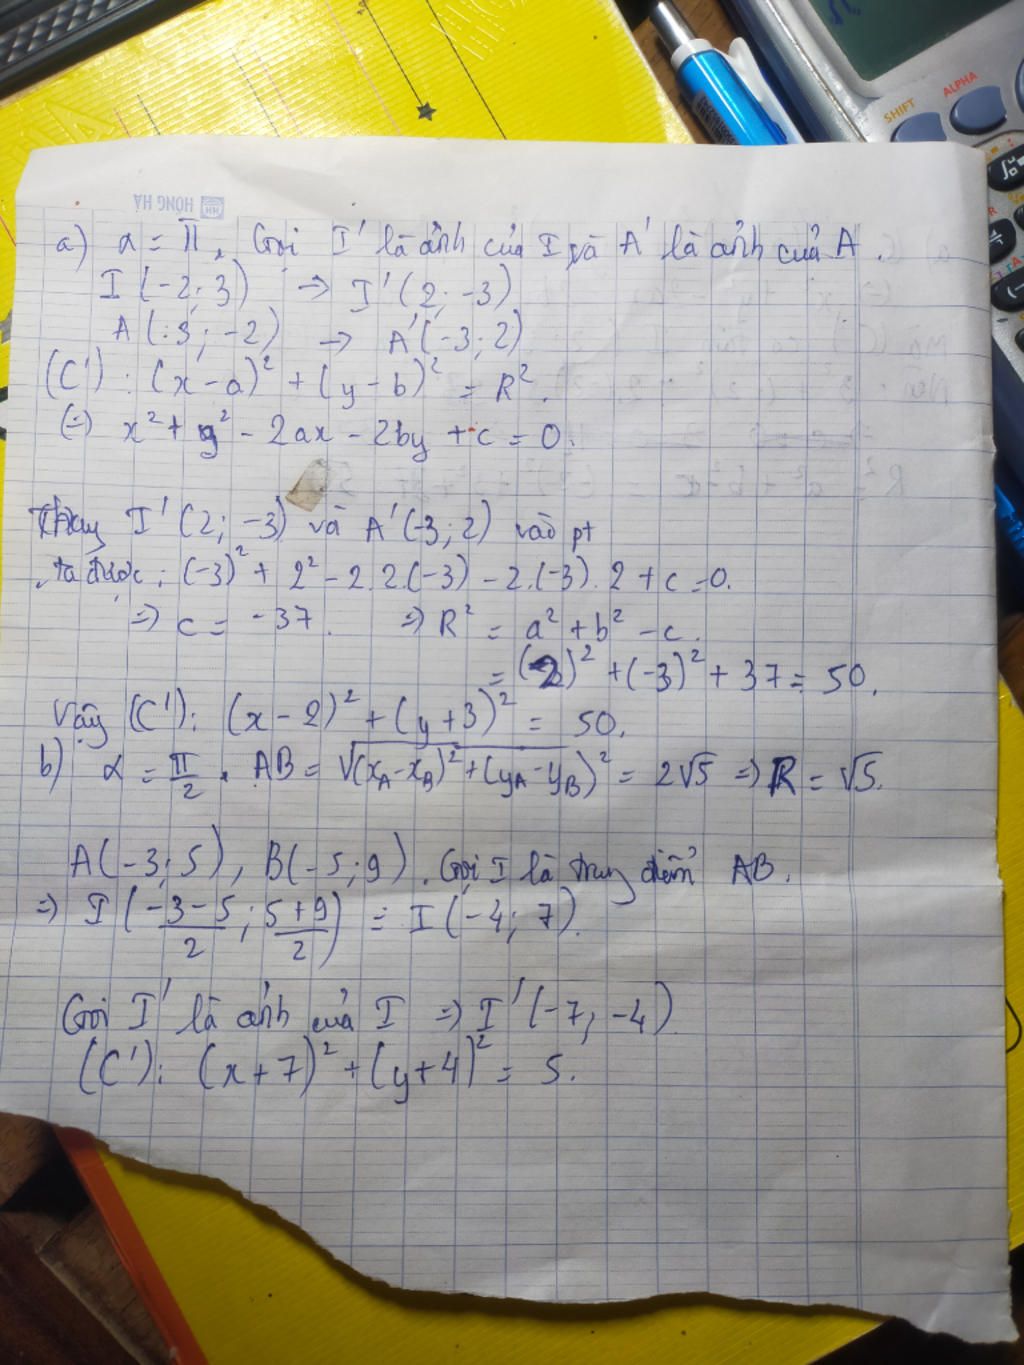 SHIFT
ALPHA
HỒNG HÀ
a) α = π. Gọi I' là ảnh của I và A' là ảnh của A.
I(-2; 3) → I'(2; -3)
A(3; -2) → A'(-3; 2)
(C'): (x - a)² + (y - b)² = R².
(=) x² + y² - 2ax - 2by + c = 0.
Thay I'(2; -3) và A'(-3; 2) vào pt
ta được: (-3)² + 2² - 2.2.(-3) - 2.(-3).2 + c = 0.
=> c = -37. => R² = a² + b² - c.
= (2)² + (-3)² + 37 = 50.
Vậy (C'): (x - 2)² + (y + 3)² = 50.
b) α = π/2. AB = √((x_A - x_B)² + (y_A - y_B)²) = 2√5 => R = √5.
A(-3; 5), B(-5; 9). Gọi I là trung điểm AB.
=> I((-3-5)/2; (5+9)/2) = I(-4; 7).
Gọi I' là ảnh của I => I'(-7; -4)
(C'): (x + 7)² + (y + 4)² = 5.